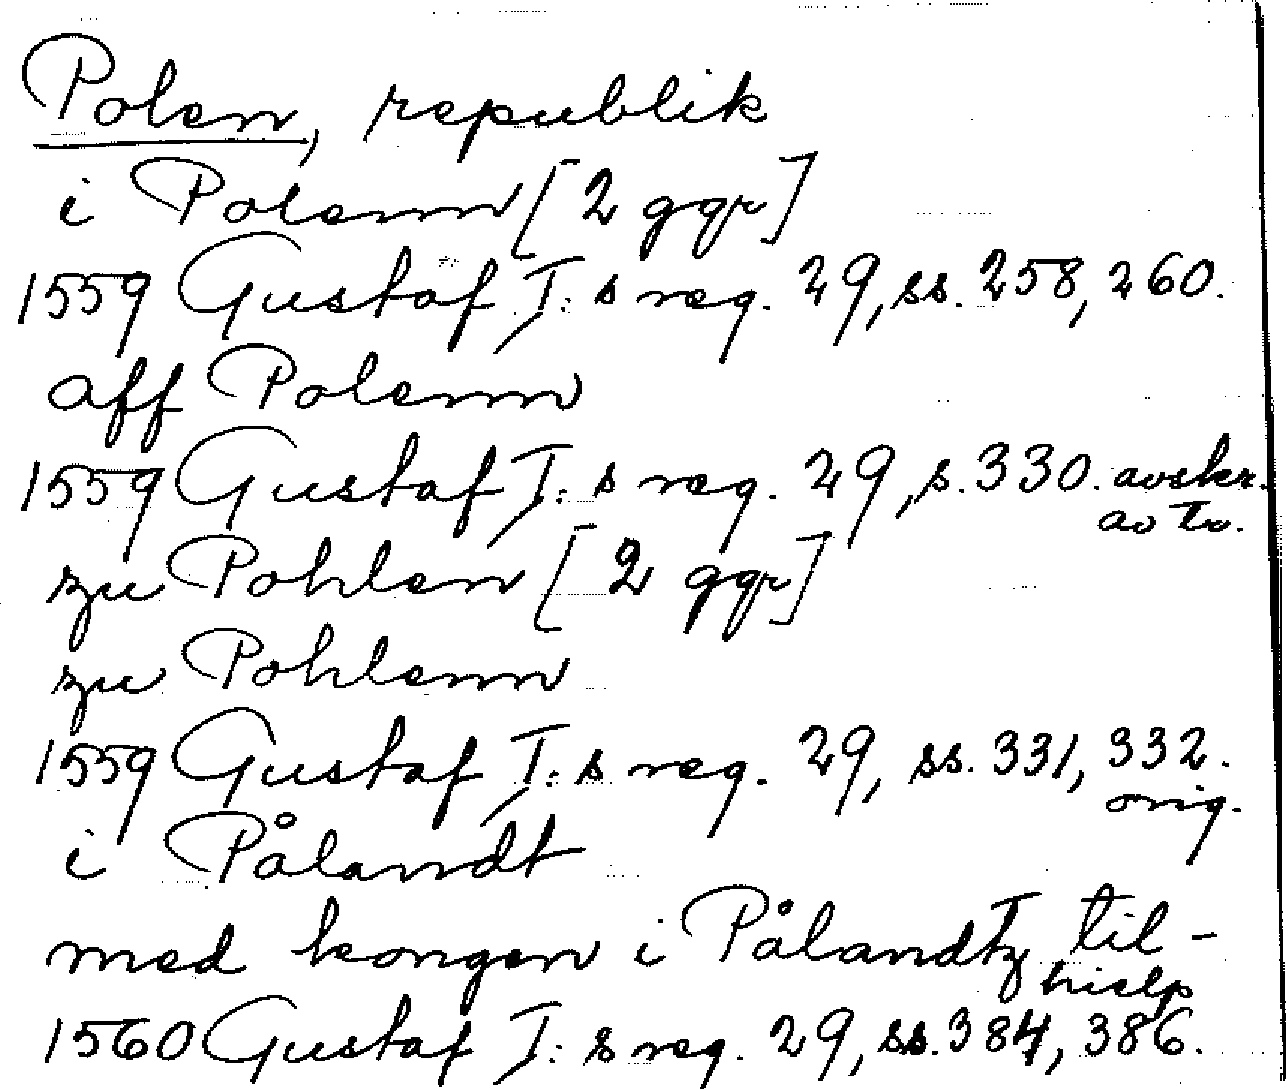 Polen, republik
i Polenn [2 ggr]
1559 Gustaf I:s reg. 29, ss. 258, 260.
aff Polenn
1559 Gustaf I:s reg. 29, s. 330. avskr.
av Tv.
zu Pohlen [2 ggr]
zu Pohlenn
1559 Gustaf I:s reg. 29, ss. 331, 332.
orig.
i Pålandt
med kongen i Pålandtz til-
hielp
1560 Gustaf I:s reg. 29, ss. 384, 386.